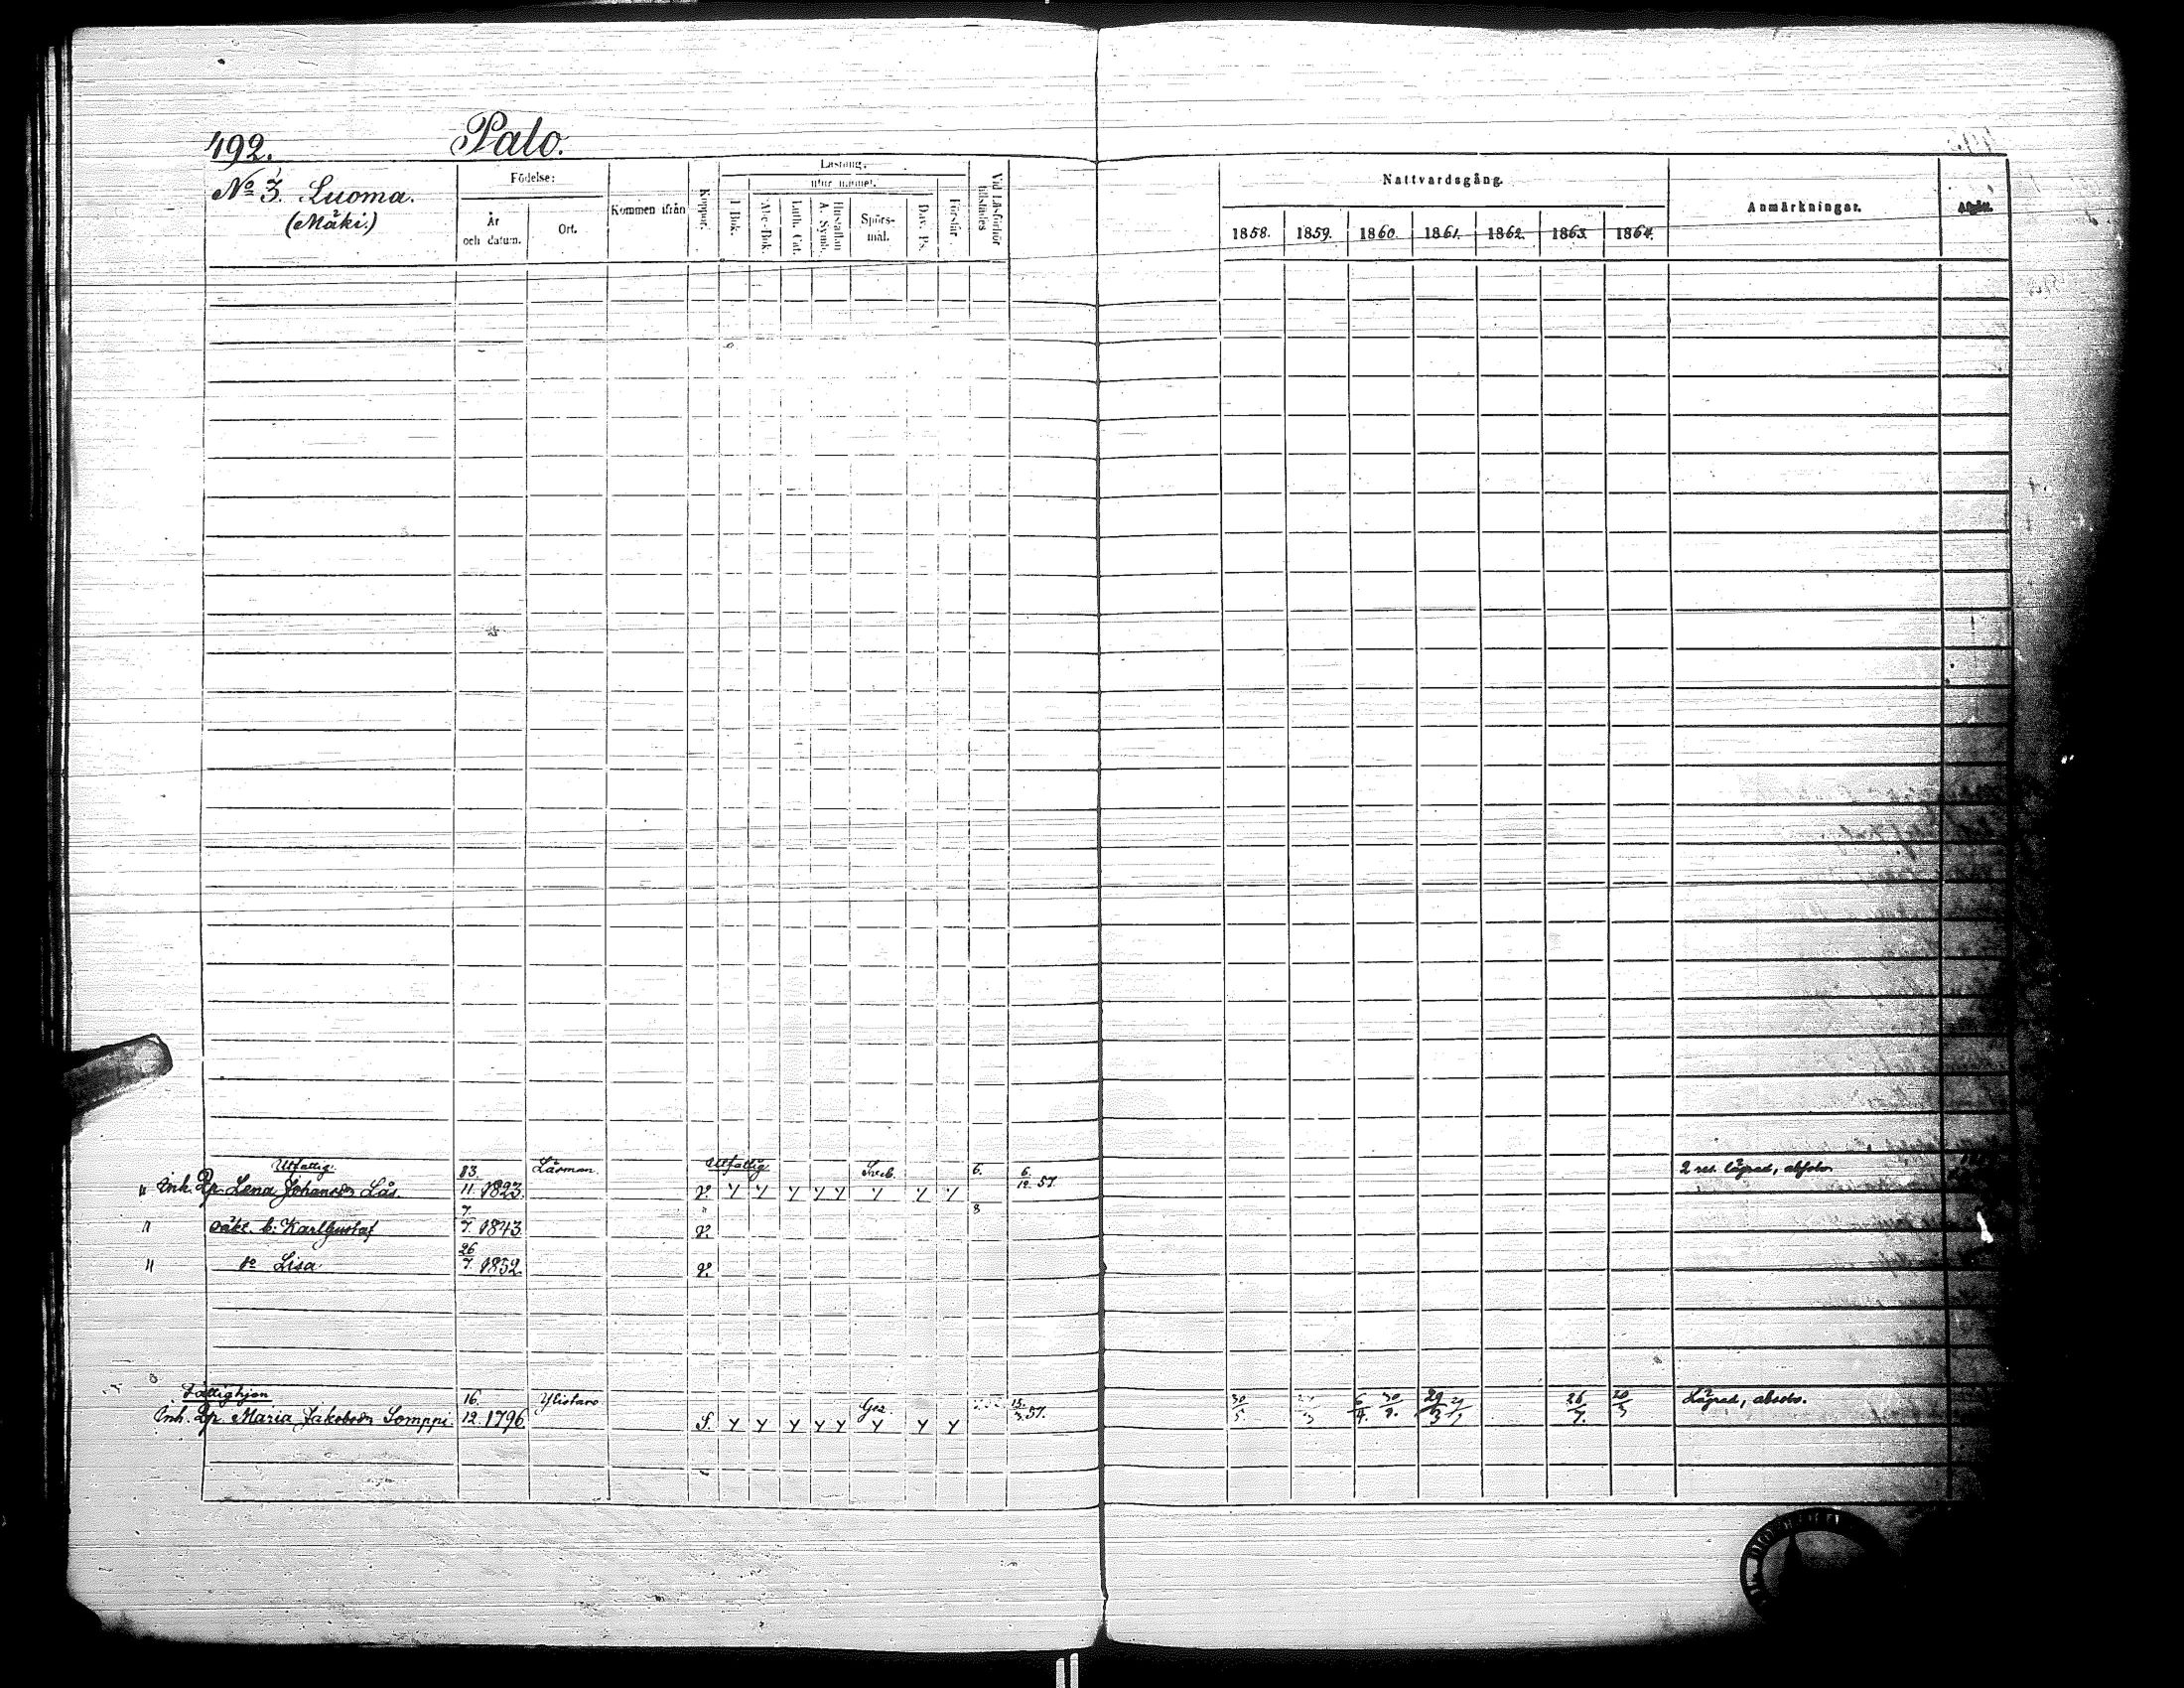 492. Palo.
No 3. Luoma.
(Mäki.)
Födelse:
År och datum.
Ort.
Kommen ifrån
Koppor.
Läsning,
utur minnet.
I Bok.
Abc-Bok.
Luth. Cat.
Hustaflan A. Symb.
Spörsmål.
Dav. Ps.
Förstår
Vid Läsförhör tillstädes
Nattvardsgång.
1858. 1859. 1860. 1861. 1862. 1863. 1864.
Anmärkningar.
Afgått.
Utfattig 13. Lärman. Utfattig Sveb. 6. 6/12 57. 2 res. lägrad, absolv.
" Inh. Qp. Lena Johansdr Lås 11. 1823. v. y y y y y y y y
" oäkt. b: Karl Gustaf 7/7. 1843. v. " 8
" do Lisa 26/7. 1852 v.
Fattighjon 16. Ylistaro Gez. 15/3 57. 30/5. 6/4. 30/9. 29/3 26/7. 20/3 Lägrad, absolv.
Inh. Qp. Maria Jakobsdr Somppi. 12. 1796. S. y y y y y y y y